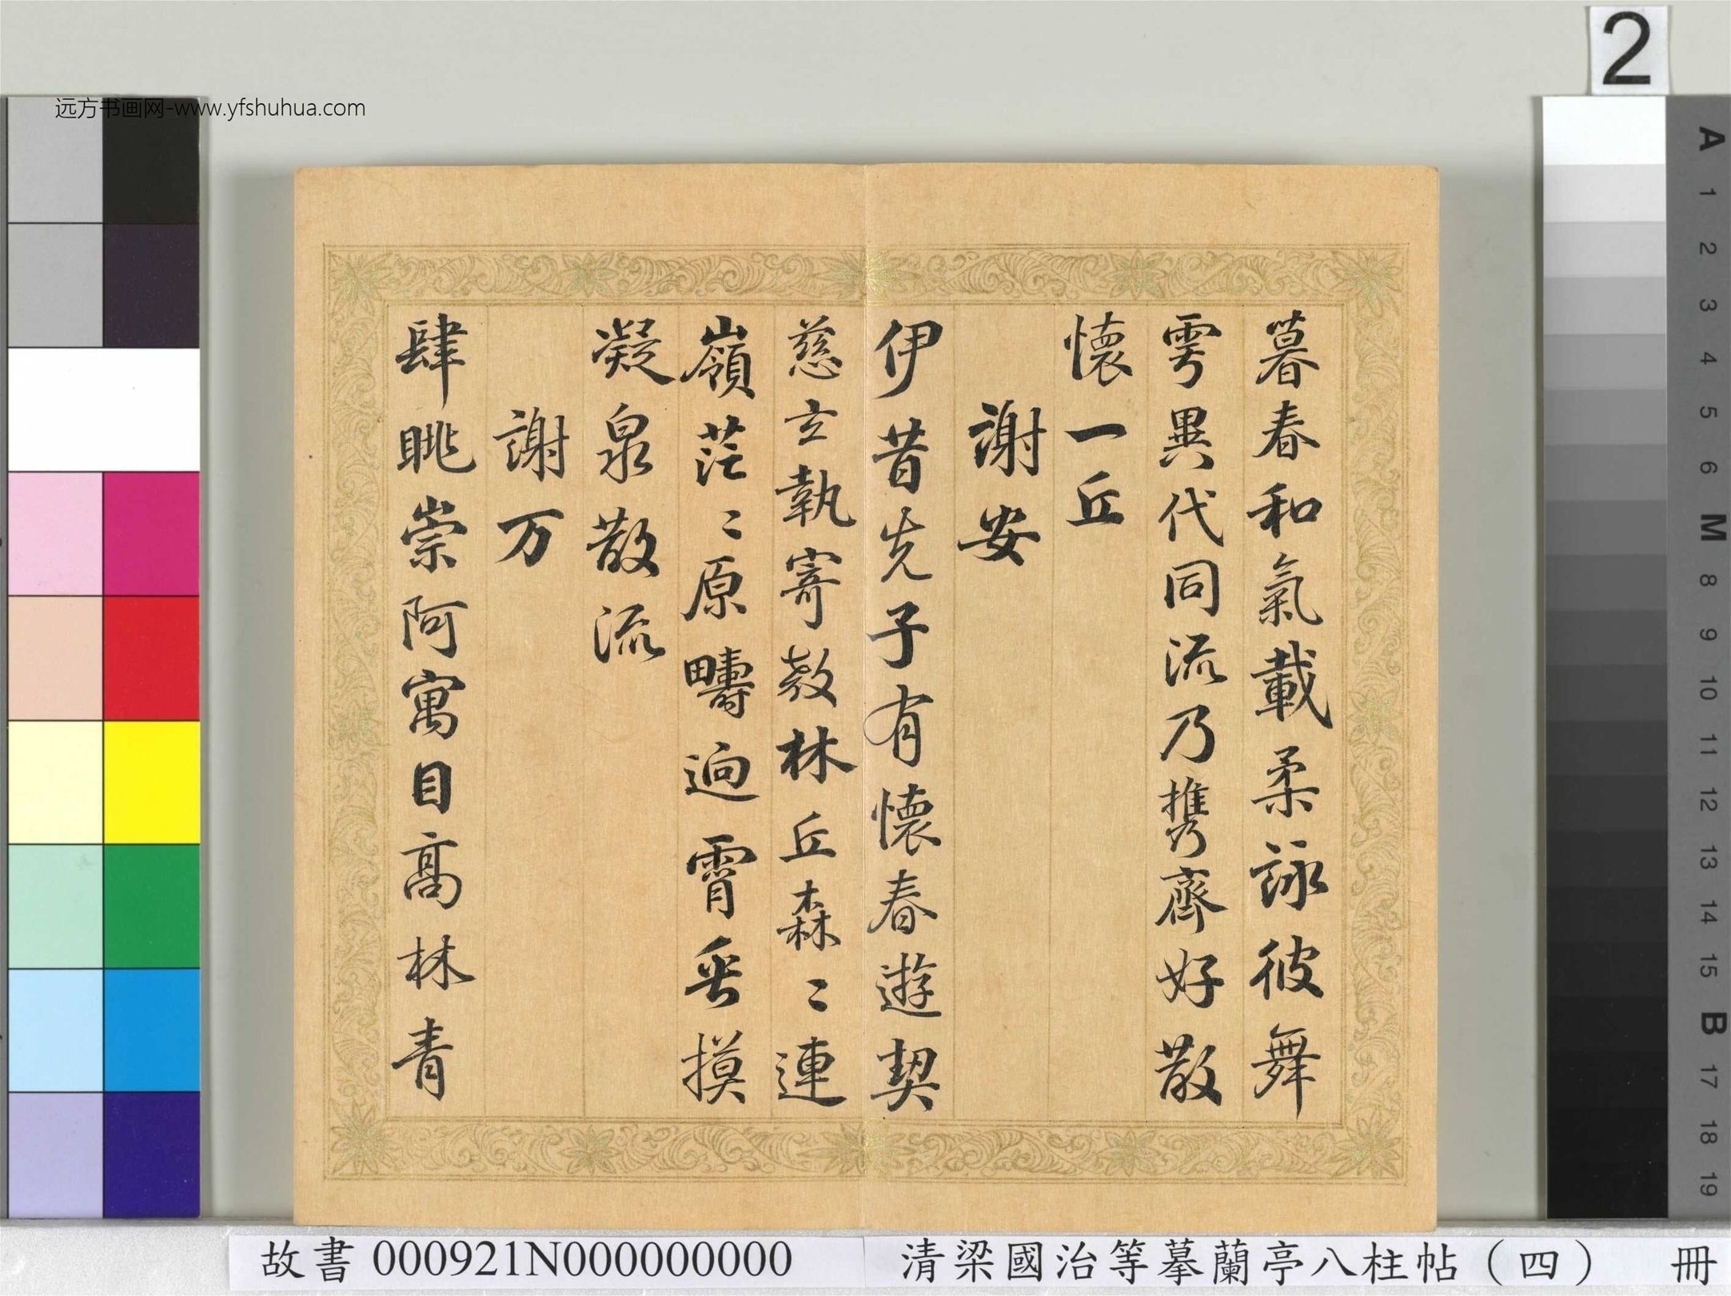 远方书画网-www.yfshuhua.com
2
暮春和氣載柔詠彼舞
雩異代同流乃携齊好散
懷一丘
謝安
伊昔先子有懷春遊契
慈言執寄敖林丘森〻連
嶺茫〻原疇迥霄垂摸
凝泉散流
謝万
肆眺崇阿寓目高林青
A
1
2
3
4
5
6
M
8
9
10
11
12
13
14
15
B
17
18
19
故書 000921N000000000
清梁國治等摹蘭亭八柱帖（四） 冊